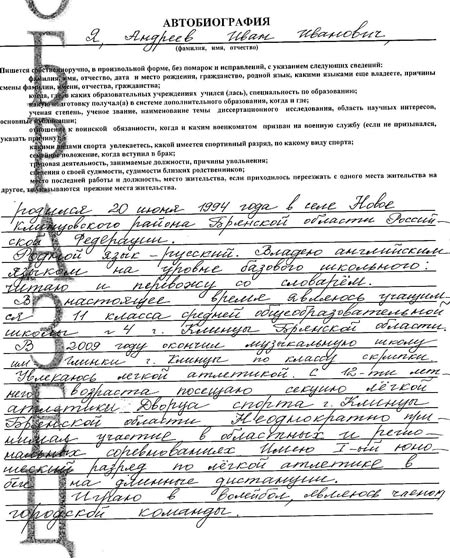 АВТОБИОГРАФИЯ
Я, Андреев Иван Иванович,
(фамилия, имя, отчество)
Пишется собственноручно, в произвольной форме, без помарок и исправлений, с указанием следующих сведений:
фамилия, имя, отчество, дата и место рождения, гражданство, родной язык, какими языками еще владеете, причины
смены фамилии, имени, отчества, гражданства;
когда, где, в каких образовательных учреждениях учился (лась), специальность по образованию;
подготовку получал(а) в системе дополнительного образования, когда и где;
ученая степень, ученое звание, наименование темы диссертационного исследования, область научных интересов,
основные публикации;
отношение к воинской обязанности, когда и каким военкоматом призван на военную службу (если не призывался,
указать причину);
какими видами спорта увлекаетесь, какой имеется спортивный разряд, по какому виду спорта;
семейное положение, когда вступил в брак;
трудовая деятельность, занимаемые должности, причины увольнения;
сведения о своей судимости, судимости близких родственников;
место последней работы и должность, место жительства, если приходилось переезжать с одного места жительства на
другое, то указываются прежние места жительства.
родился 20 июня 1994 года в селе Новое
Клинцовского района Брянской области Россий-
ской Федерации.
Родной язык – русский. Владею английским
языком на уровне базового школьного:
читаю и перевожу со словарём.
В настоящее время являюсь учащим-
ся 11 класса средней общеобразовательной
школы № 4 г. Клинцы Брянской области.
В 2009 году окончил музыкальную школу
им Глинки г. Клинцы по классу скрипки
Увлекаюсь легкой атлетикой. С 12-ти лет-
него возраста посещаю секцию лёгкой
атлетики Дворца спорта г. Клинцы
Брянской области Неоднократно при-
нимал участие в областных и регио-
нальных соревнованиях Имею I-ый юно-
шеский разряд по лёгкой атлетике в
беге на длинные дистанции.
Играю в волейбол, являюсь членом
городской команды.
ОБРАЗЕЦ